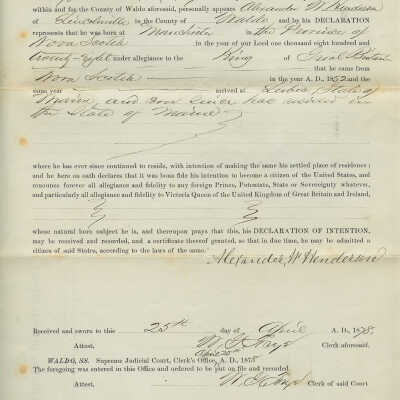 within and for the County of Waldo aforesaid, personally appears Alexander W. Henderson
of Lincolnville in the County of Waldo and by his DECLARATION
represents that he was born at Manchester in the Province of
Nova Scotia in the year of our Lord one thousand eight hundred and
twenty-eight under allegiance to the King of Great Britain
that he came from
Nova Scotia in the year A. D., 1852 and the
same year arrived at Lubec State of
Maine, and ever since has resided in
the State of Maine
where he has ever since continued to reside, with intention of making the same his settled place of residence:
and he here on oath declares that it was bona fide his intention to become a citizen of the United States, and
renounce forever all allegiance and fidelity to any foreign Prince, Potentate, State or Sovereignty whatever,
and particularly all allegiance and fidelity to Victoria Queen of the United Kingdom of Great Britain and Ireland,
whose natural born subject he is, and thereupon prays that this, his DECLARATION OF INTENTION,
may be received and recorded, and a certificate thereof granted, so that in due time, he may be admitted a
citizen of said States, according to the laws of the same.
Alexander W Henderson
Received and sworn to this 25th day of April A. D., 1878.
Attest, W. G. Frye Clerk aforesaid.
WALDO, SS. Supreme Judicial Court, Clerk's Office, April 25th A. D., 1878
The foregoing was entered in this Office and ordered to be put on file and recorded.
Attest, W. G. Frye Clerk of said Court